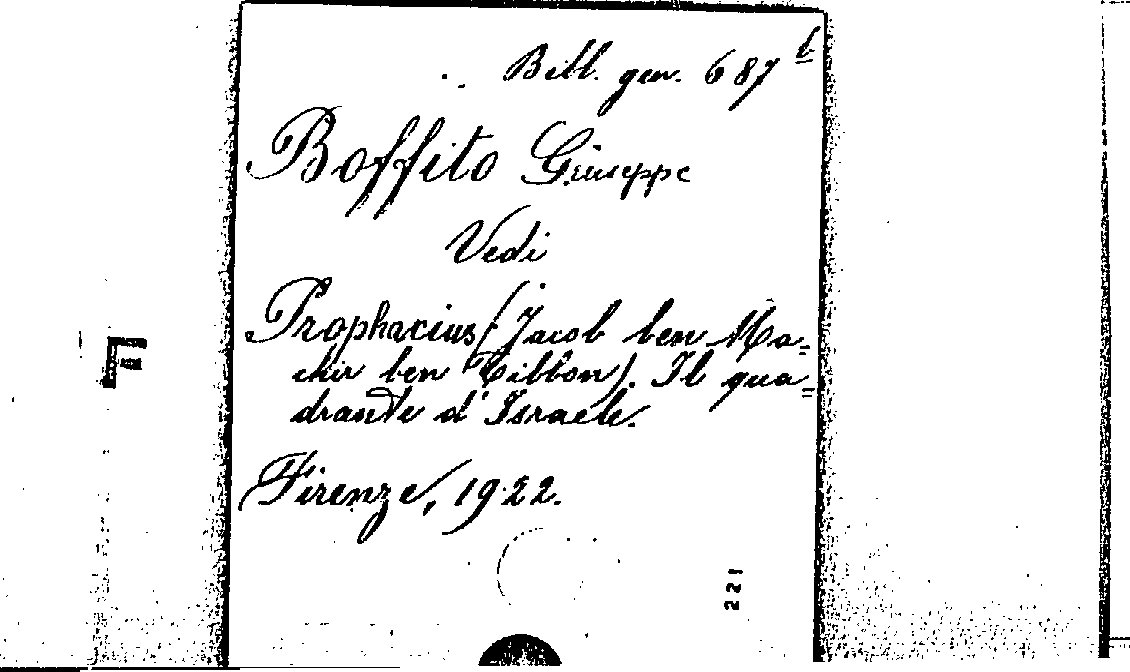 Bibl. gen. 687 b
Boffito Giuseppe
Vedi
Prophacius (Jacob ben Ma=
chir ben Tibbon). Il qua=
drante d'Israele.
Firenze, 1922.
221
F